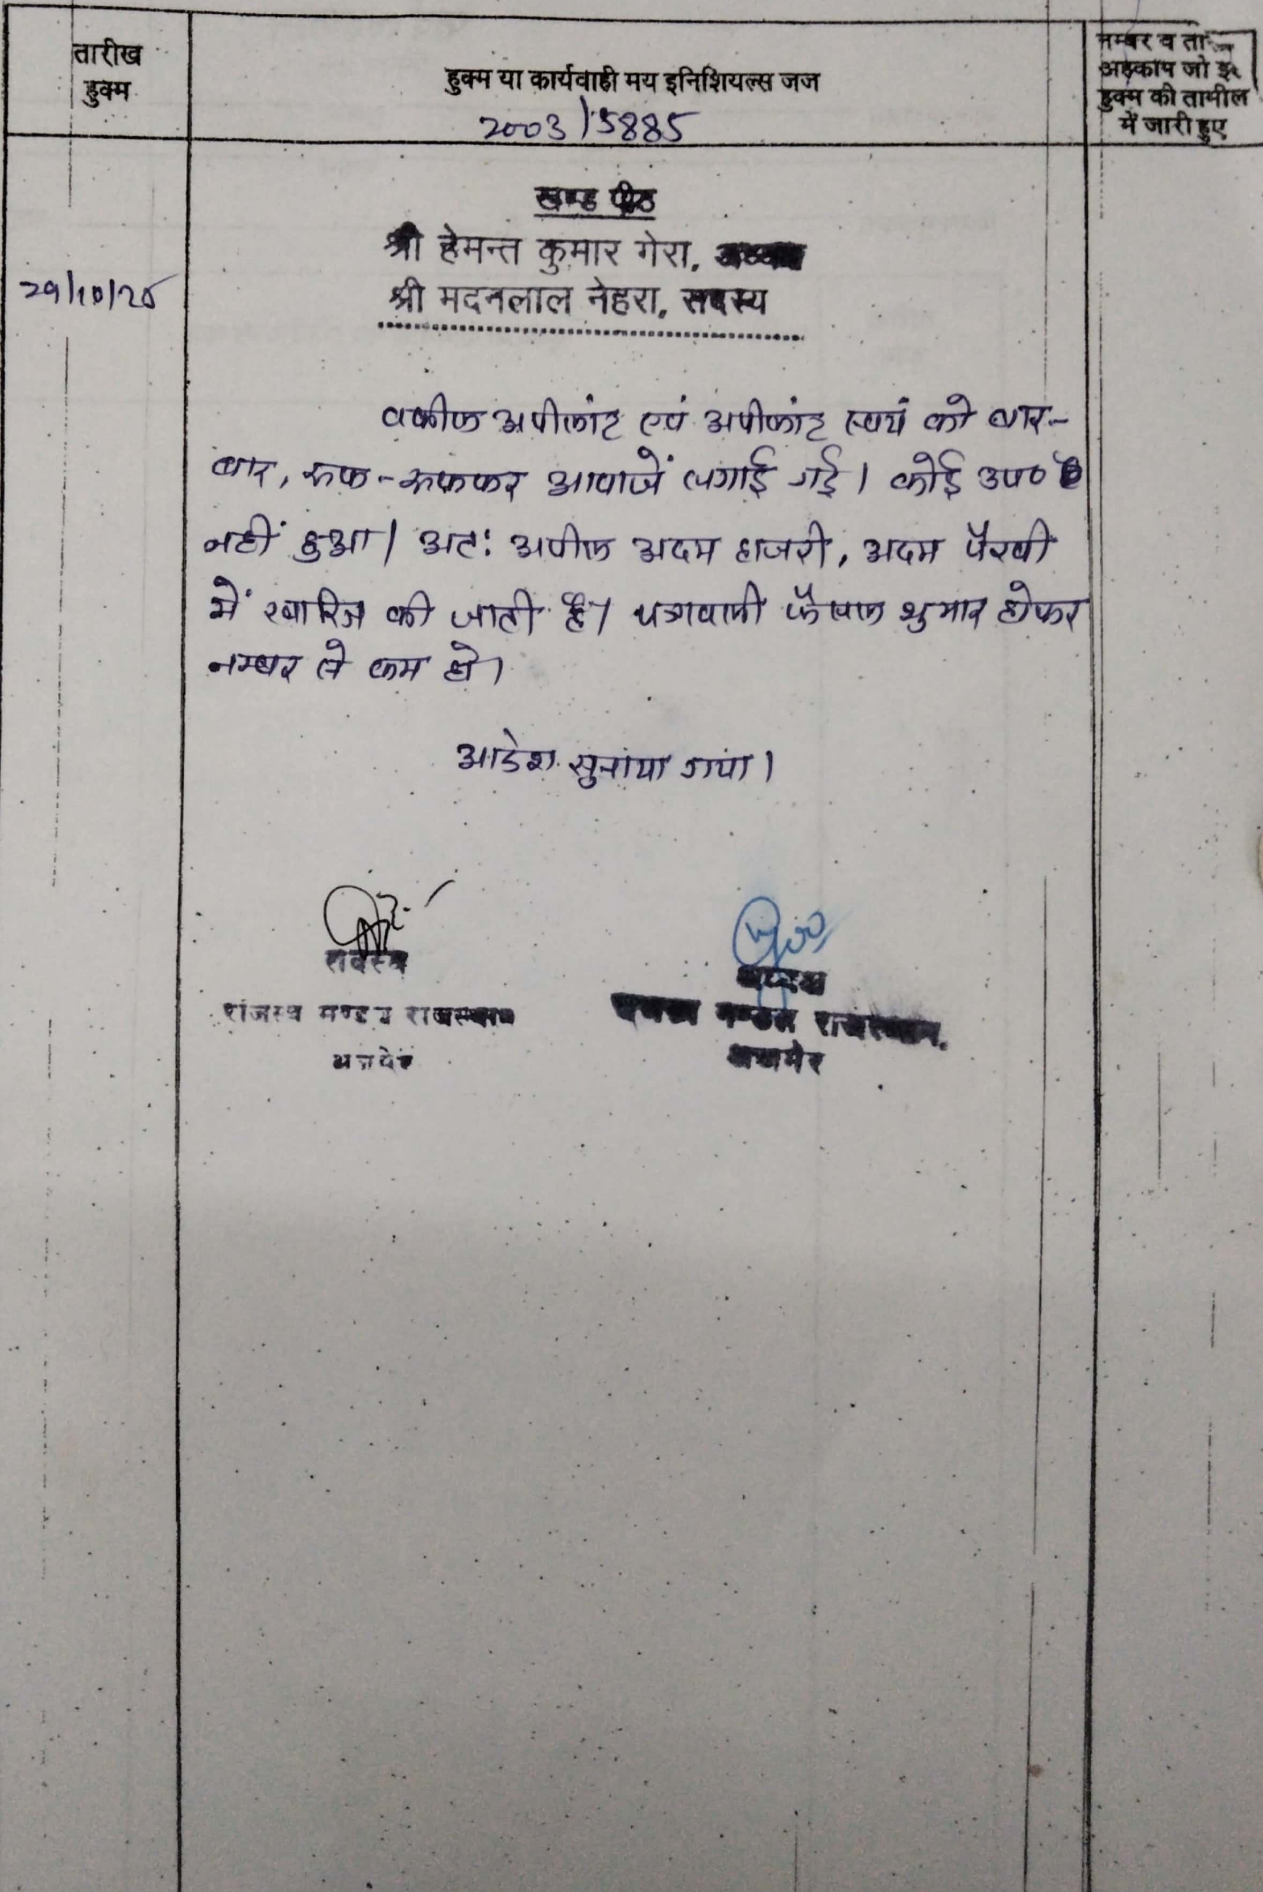 तारीख
हुक्म
हुक्म या कार्यवाही मय इनिशियल्स जज
2003/5885
नम्बर व ता
अहकाम जो इस
हुक्म की तामील
में जारी हुए
खण्ड पीठ
श्री हेमन्त कुमार गेरा, अध्यक्ष
29/10/25
श्री मदनलाल नेहरा, सदस्य
वकील अपीलांट एवं अपीलांट स्वयं को बार-
बार, रुक-रुककर आवाजें लगाई गई। कोई उप०
नहीं हुआ। अतः अपील अदम हाजरी, अदम पैरवी
में खारिज की जाती है। पत्रावली फैसल शुमार होकर
नम्बर से कम हो।
आदेश सुनाया गया।
सदस्य
राजस्व मण्डल राजस्थान
अजमेर
अध्यक्ष
राजस्व मण्डल राजस्थान,
अजमेर